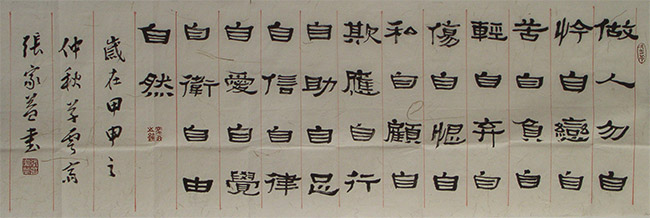 做人勿自
怜自戀自
苦自負自
輕自棄自
傷自自
私自顧自
欺應自行
自助自忌
自信自律
自愛自覺
自衛自由
自然
歲在甲申之
仲秋學雲齋
張家益書